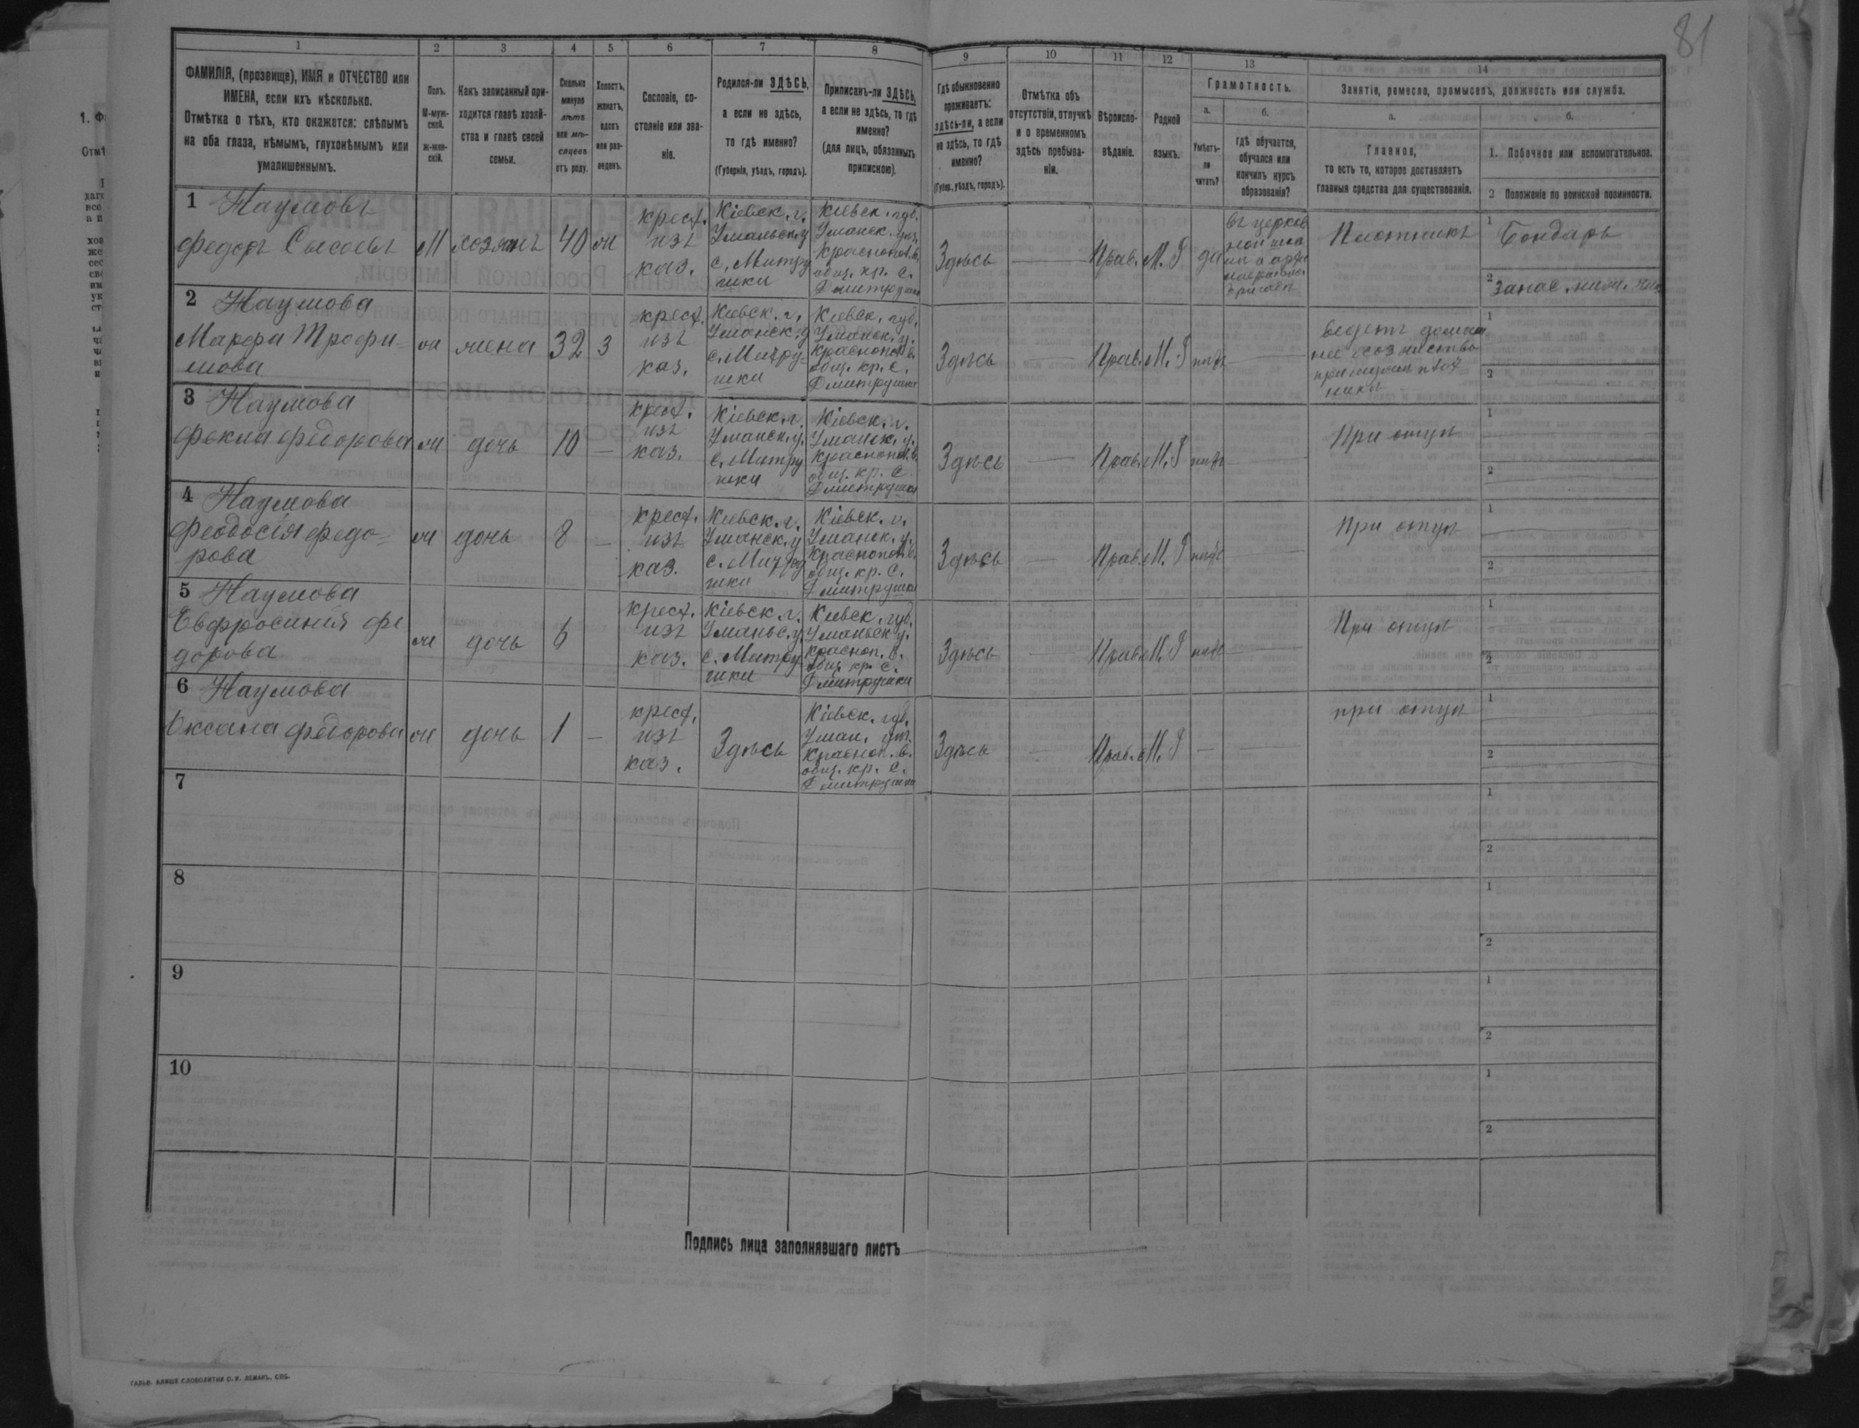 81
1 2 3 4 5 6 7 8 9 10 11 12 13 14
ФАМИЛІЯ, (прозвище), ИМЯ и ОТЧЕСТВО или
ИМЕНА, если ихъ нѣсколько.
Отмѣтка о тѣхъ, кто окажется: слѣпымъ
на оба глаза, нѣмымъ, глухонѣмымъ или
умалишеннымъ.
Полъ.
М-муж-
ской.
ж-жен-
скій.
Какъ записанный при-
ходится главѣ хозяй-
ства и главѣ своей
семьи.
Сколько
минуло
лѣтъ
или мѣ-
сяцевъ
отъ роду.
Холостъ,
женатъ,
вдовъ
или раз-
веденъ.
Сословіе, со-
стояніе или зва-
ніе.
Родился-ли ЗДѢСЬ,
а если не здѣсь,
то гдѣ именно?
(Губернія, уѣздъ, городъ).
Приписанъ-ли ЗДѢСЬ,
а если не здѣсь, то гдѣ
именно?
(для лицъ, обязанныхъ
припискою).
Гдѣ обыкновенно
проживаетъ:
здѣсь-ли, а если
не здѣсь, то гдѣ
именно?
(Губер., уѣздъ, городъ).
Отмѣтка объ
отсутствіи, отлучкѣ
и о временномъ
здѣсь пребыва-
ніи.
Вѣроиспо-
вѣданіе.
Родной
языкъ.
Грамотность.
а.
Умѣетъ-
ли
читать?
б.
Гдѣ обучается,
обучался или
кончилъ курсъ
образованія?
Занятіе, ремесло, промыселъ, должность или служба.
а.
Главное,
то есть то, которое доставляетъ
главныя средства для существованія.
б.
1. Побочное или вспомогательное.
2 Положеніе по воинской повинности.
1 Наумовъ
Федоръ Сысоевъ
М хозяинъ 40 ж
крест.
изъ
каз.
Кіевск. г.
с. Митру
шки
Кіевск. губ.
Уманск. уѣз.
общ. кр. с.
Дмитрушки
Здѣсь — Прав. М. Р да
Плотникъ
1 Бондарь
2 Запас.
2 Наумова
Марфа Трофи-
мова
ж жена 32 З
крест.
изъ
каз.
Кіевск. г.
Уманск. у
с. Митру-
шки
Кіевск. губ.
Уманск. у.
общ. кр. с.
Дмитрушки
Здѣсь — Прав. М. Р нѣтъ —
ведетъ домаш
1
2
3 Наумова
Фекла Федорова
ж дочь 10 —
крест.
изъ
каз.
Кіевск. г.
Уманск. у.
с. Митру
шки
Кіевск. г.
Уманск. у.
общ. кр. с.
Дмитрушки
Здѣсь — Прав. М. Р нѣтъ —
При отцѣ
1
2
4 Наумова
Феодосія Федо-
рова
ж дочь 8 —
крест.
изъ
каз.
Кіевск. г.
Уманск. у
с. Митру
шки
Кіевск. г.
Уманск. у.
общ. кр. с.
Дмитрушки
Здѣсь — Прав. М. Р нѣтъ —
При отцѣ
1
2
5 Наумова
Евфросинія Фе
дорова
ж дочь 6
крест.
изъ
каз.
Кіевск. г.
с. Митру
шки
Кіевск. губ.
Красноп. в.
общ. кр. с.
Дмитрушки
Здѣсь — Прав. М. Р нѣтъ —
При отцѣ
1
2
6 Наумова
Оксана Федорова
ж дочь 1 —
крест.
изъ
каз.
Здѣсь
Кіевск. губ.
Уман. уѣз.
Красноп. в.
общ. кр. с.
Дмитрушки
Здѣсь — Прав. М. Р —
при отцѣ
1
2
7
1
2
8
1
2
9
1
2
10
1
2
Подпись лица заполнявшаго листъ